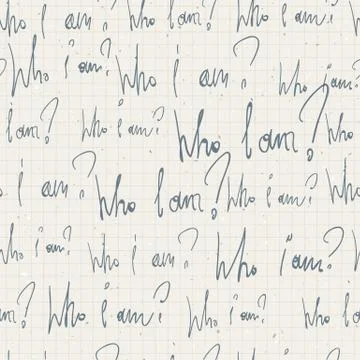 Who I am? Who I am?
Who I am? I am? Who I am?
I am? Who I am? Who I am? Who
I am? Who I am? Who I am?
Who I am? Who I am? Who I am?
am? Who I am? Who I am? Who I